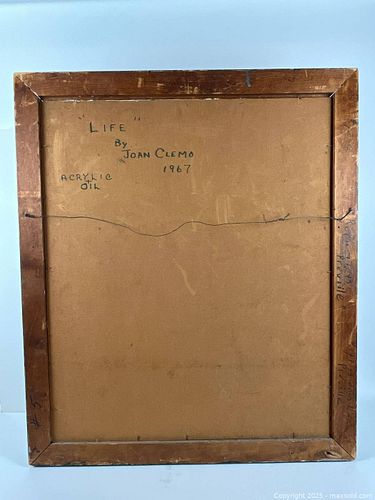 "LIFE"
By
JOAN CLEMO
1967
ACRYLIC
+
OIL
Copyright 2025 - maxsold.com